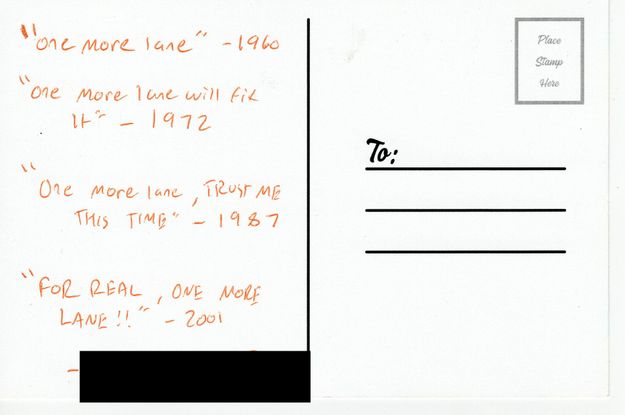 "One more lane" - 1960
"One more lane will fix
it" - 1972
"One more lane, TRUST ME
THIS TIME" - 1987
"FOR REAL, ONE MORE
LANE!!" - 2001
-
Place
Stamp
Here
To: